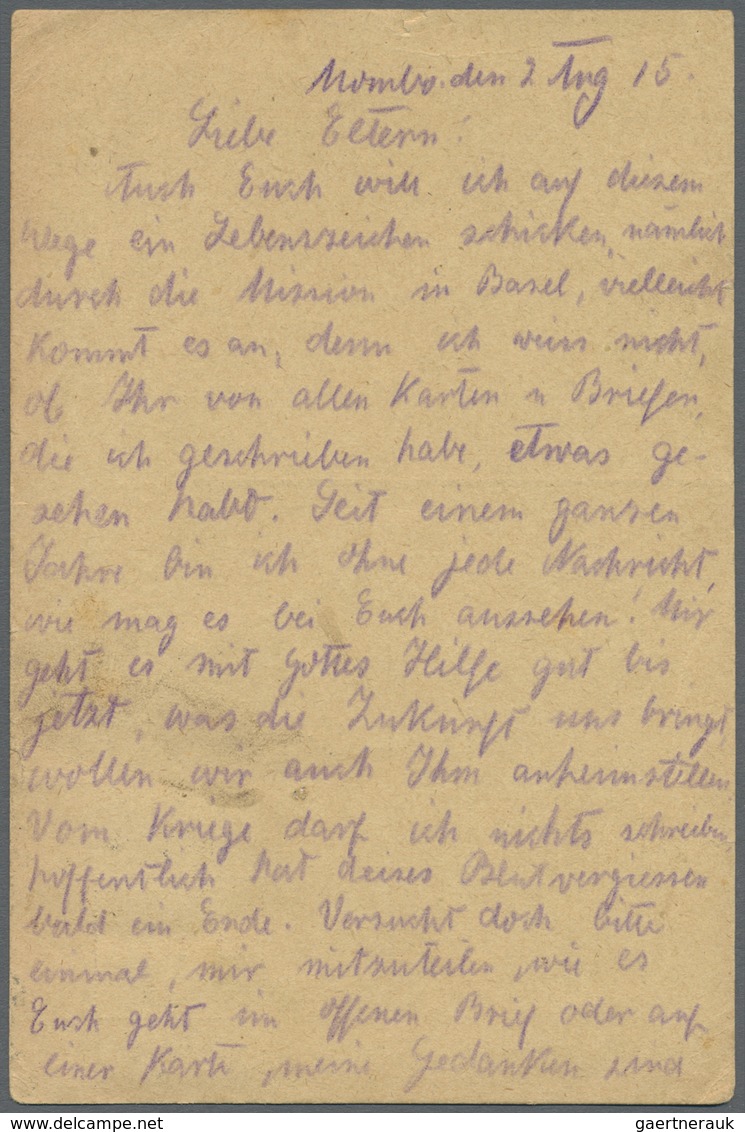 Mombo. den 2 Aug 15.
Liebe Eltern!
Auch Euch will ich auf diesem
Wege ein Lebenszeichen schicken, nämlich
durch die Mission in Basel, vielleicht
kommt es an, denn ich weiss nicht,
ob Ihr von allen Karten u Briefen,
die ich geschrieben habe, etwas ge-
sehen habt. Seit einem ganzen
Jahre bin ich ohne jede Nachricht,
wie mag es bei Euch aussehen! Mir
geht es mit Gottes Hilfe gut bis
jetzt, was die Zukunft uns bringt,
wollen wir auch Ihm anheimstellen.
Vom Kriege darf ich nichts schreiben,
hoffentlich hat deises Blutvergiessen
bald ein Ende. Versucht doch bitte
einmal, mir mitzuteilen, wie es
Euch geht im offenen Brief oder auf
einer Karte, meine Gedanken sind
gaertnerauk